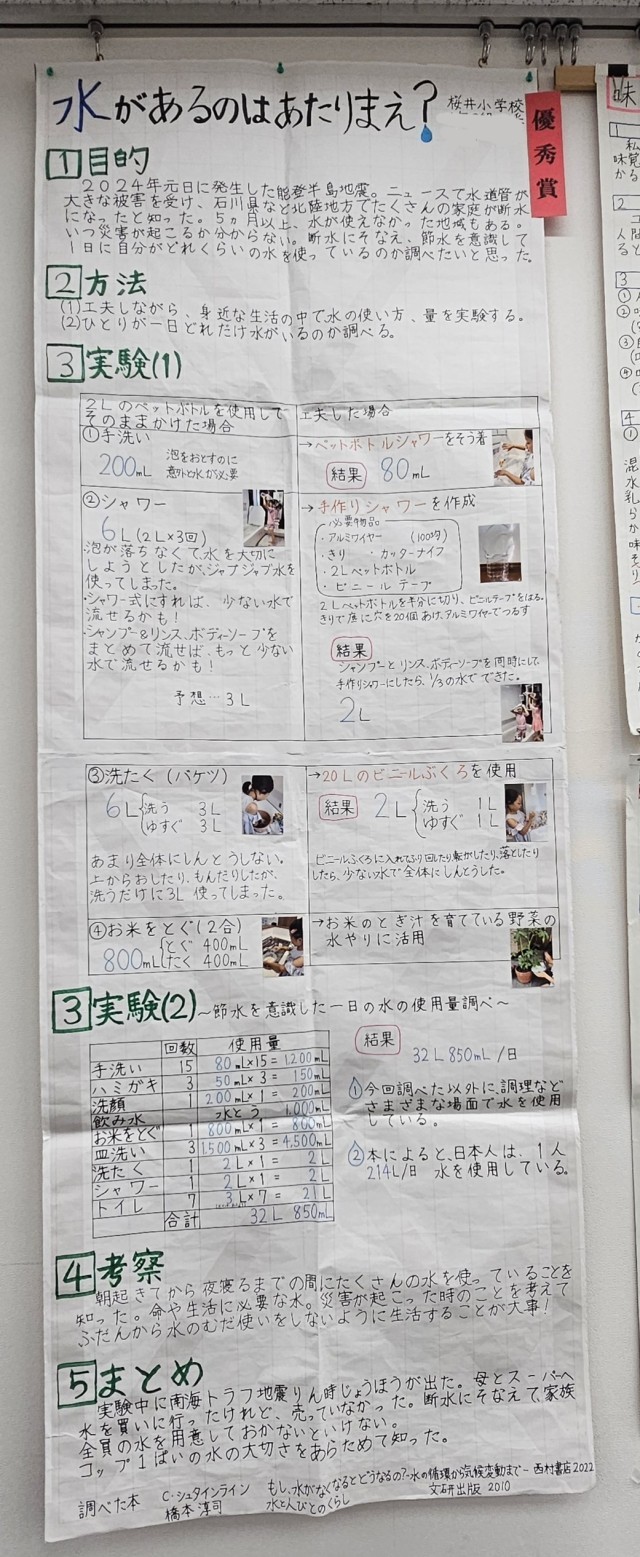 水があるのはあたりまえ?
桜井小学校
優秀賞
1 目的
2024年元日に発生した能登半島地震。ニュースで水道管が
大きな被害を受け、石川県など北陸地方でたくさんの家庭が断水
になったと知った。5ヵ月以上、水が使えなかった地域もある。
いつ災害が起こるか分からない。断水にそなえ、節水を意識して
1日に自分がどれくらいの水を使っているのか調べたいと思った。
2 方法
(1)工夫しながら、身近な生活の中で水の使い方、量を実験する。
(2)ひとりが一日どれだけ水がいるのか調べる。
3 実験(1)
2Lのペットボトルを使用して
そのままかけた場合
工夫した場合
①手洗い
200mL
泡をおとすのに
意外と水が必要
→ペットボトルシャワーをそう着
結果 80mL
②シャワー
6L(2L×3回)
泡が落ちなくて水を大切に
しようとしたが、ジャブジャブ水を
使ってしまった。
・シャワー式にすれば、少ない水で
流せるかも!
・シャンプー&リンス、ボディーソープを
まとめて流せば、もっと少ない
水で流せるかも!
予想…3L
→手作りシャワーを作成
必要物品
・アルミワイヤー (100均)
・きり ・カッターナイフ
・2Lペットボトル
・ビニールテープ
2Lペットボトルを半分に切り、ビニールテープをはる。
きりで底に穴を20個あけ、アルミワイヤーでつるす
結果
シャンプーとリンス、ボディーソープを同時にして
手作りシャワーにしたら、1/3の水でできた。
2L
③洗たく(バケツ)
6L 洗う 3L
ゆすぐ 3L
あまり全体にしんとうしない。
上からおしたり、もんだりしたが、
洗うだけに3L使ってしまった。
→20Lのビニールぶくろを使用
結果 2L 洗う 1L
ゆすぐ 1L
ビニールぶくろに入れてふり回したり、転がしたり、落としたり
したら、少ない水で全体にしんとうした。
④お米をとぐ(2合)
800mL とぐ 400mL
たく 400mL
→お米のとぎ汁を育てている野菜の
水やりに活用
3 実験(2)~節水を意識した一日の水の使用量調べ~
回数 使用量
手洗い 15 80mL×15=1,200mL
ハミガキ 3 50mL×3=150mL
洗顔 1 200mL×1=200mL
飲み水 水とう 1,000mL
お米をとぐ 1 800mL×1=800mL
皿洗い 3 1,500mL×3=4,500mL
洗たく 1 2L×1=2L
シャワー 1 2L×1=2L
トイレ 7 3L×7=21L
合計 32L 850mL
結果
32L850mL/日
①今回調べた以外に、調理など
さまざまな場面で水を使用
している。
②本によると、日本人は、1人
214L/日 水を使用している。
4 考察
朝起きてから夜寝るまでの間にたくさんの水を使っていることを
知った。命や生活に必要な水。災害が起こった時のことを考えて
ふだんから水のむだ使いをしないように生活することが大事!
5 まとめ
実験中に南海トラフ地震りん時じょうほうが出た。母とスーパーへ
水を買いに行ったけれど、売っていなかった。断水にそなえて家族
全員の水を用意しておかないといけない。
コップ1ぱいの水の大切さをあらためて知った。
調べた本 C・シュタインライン もし、水がなくなるとどうなるの?-水の循環から気候変動まで- 西村書店2022
橋本淳司 水と人びとのくらし 文研出版 2010